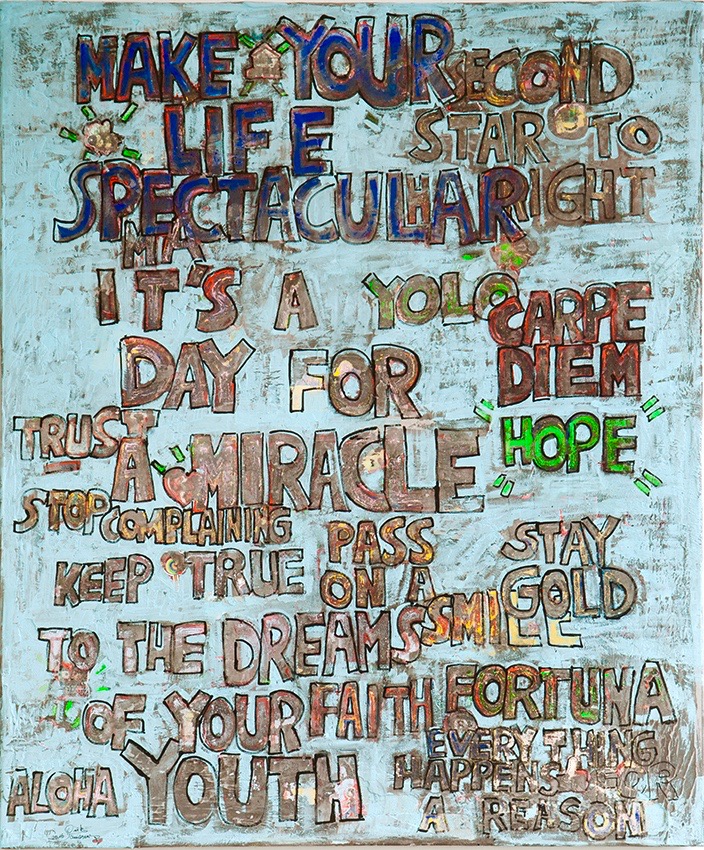 MAKE YOUR
LIFE
SPECTACULAR
SECOND
STAR TO
RIGHT
MIA
IT'S A
DAY FOR
A MIRACLE
YOLO
CARPE
DIEM
HOPE
TRUST
STOP COMPLAINING
KEEP TRUE
TO THE DREAMS
OF YOUR
YOUTH
PASS
ON A
SMILE
STAY
GOLD
FAITH
FORTUNA
EVERYTHING
HAPPENS FOR
A REASON
ALOHA